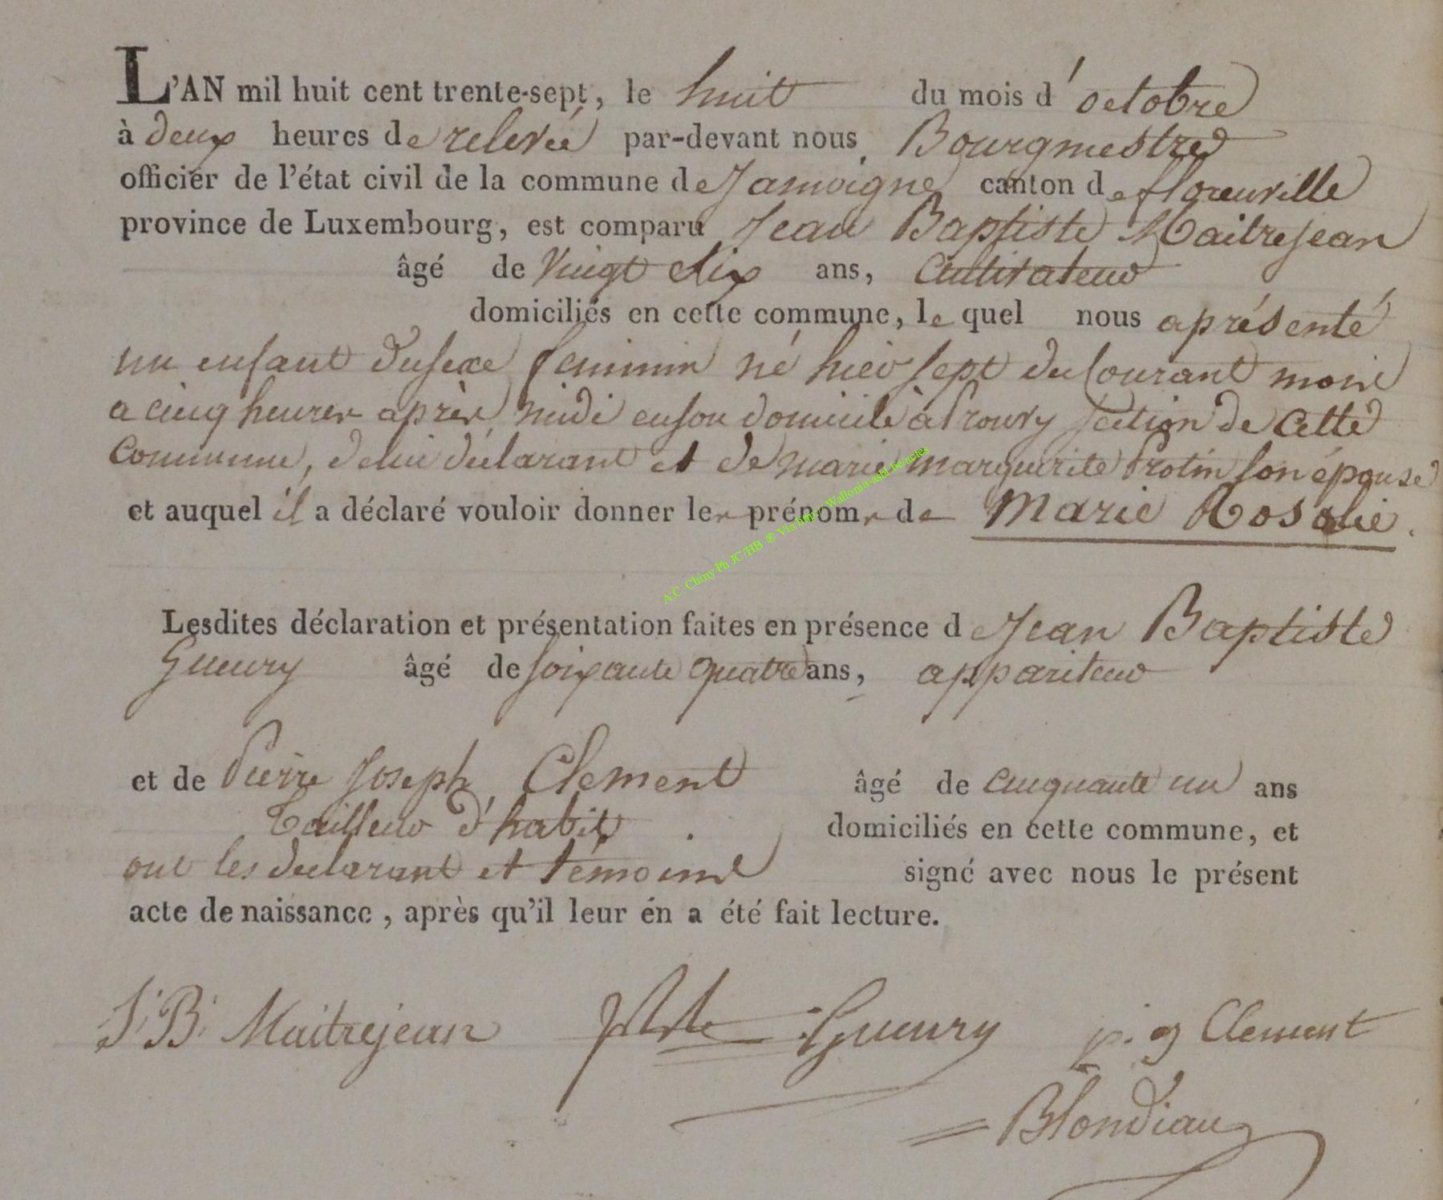 L'AN mil huit cent trente-sept, le huit du mois d'octobre
à deux heures de relevée par-devant nous, Bourgmestre
officier de l'état civil de la commune de Jamoigne canton de florenville
province de Luxembourg, est comparu Jean Baptiste Maitrejean
âgé de Vingt dix ans, Cultivateur
domiciliés en cette commune, le quel nous aprésenté
un enfant du sexe feminin né hier sept du Courant mois
a cinq heures après midi en son domicile à Prouvy section de cette
Commune, de lui déclarant et de marie marguerite Protin son épouse
et auquel il a déclaré vouloir donner les prénoms de Marie Rosalie.
Lesdites déclaration et présentation faites en présence de Jean Baptiste
Gueury âgé de soixante quatre ans, appariteur
et de Pierre Joseph Clement âgé de cinquante un ans
Tailleur d'habit. domiciliés en cette commune, et
ont les declarant et témoins signé avec nous le présent
acte de naissance, après qu'il leur én a été fait lecture.
J. B. Maitrejean Gueury p. j Clement
Blondiau